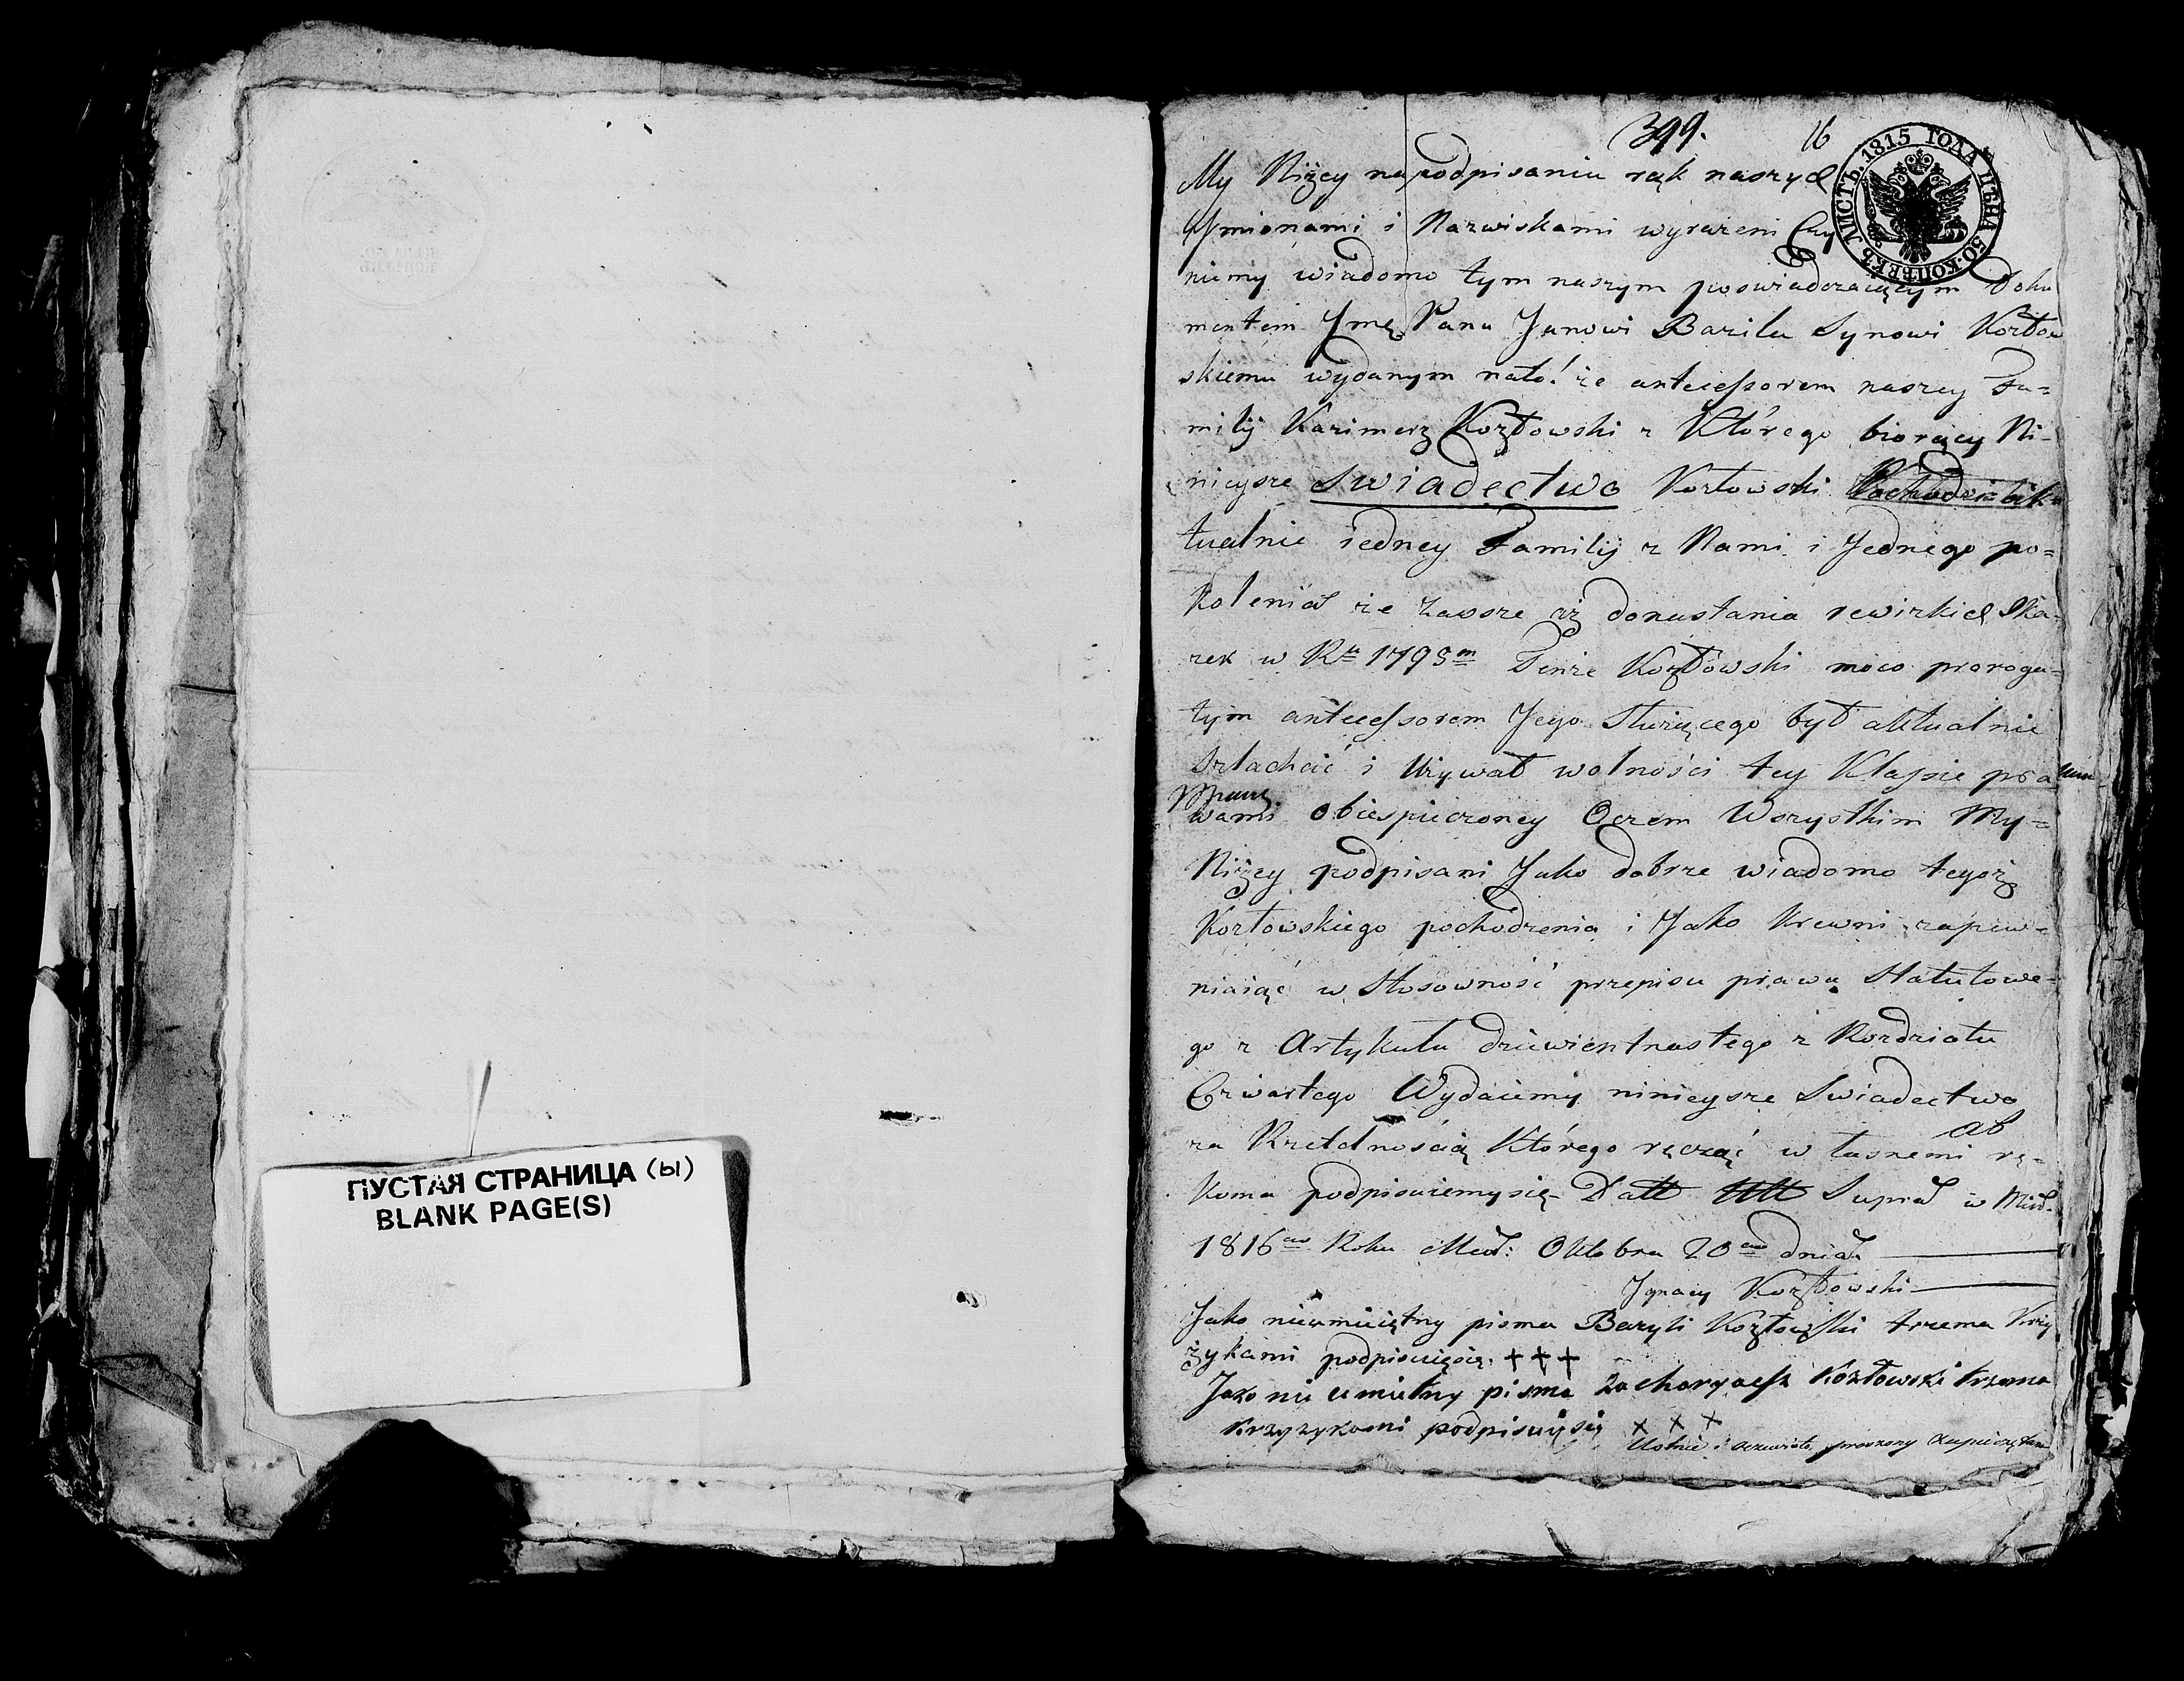 ПУСТАЯ СТРАНИЦА (Ы)
BLANK PAGE(S)
399. 16
ЛИСТЪ 1815 ГОДА ЦѢНА 50 КОПѢЕКЪ
My Niżey na podpisaniu rąk naszych
Jmionami i Nazwiskami wyrażeni Czy
niemy wiadomo tym naszym poswiadczaiącym Doku
mentem Jmę Panu Janowi Bazilu Synowi Kozłow
skiemu wydanym nato! że antecessorem naszey Fa=
milij Kazimerz Kozłowski z Którego biorący Ni-
nieysze swiadectwo Kozłowski
tualnie iedney Familij z Nami i Jednego po=
kolenia że zawsze aż donastania rewizkich Ska-
zek w Rku 1795m Tenże Kozłowski moco preroga-
tym antecessorem Jego Służącego był aktualnie
Szlachcić i Używał wolności tey Klassie pra
wami obiespieczoney Oczem Wszystkim My=
Niżey podpisani Jako dobrze wiadomo tegoż
Kozłowskiego pochodzenia i Jako Krewni zapiew-
niaiąć w Stosowność przepisu prawa Statutowe-
go z Artykułu dziewientnastego z Rozdziału
Czwartego Wydaiemy ninieysze Swiadectwo
za Rzetelnością Którego ręcząć własnemi rę-
koma podpisuiemysię Datt w
1816 Roku Mca: Oktobra 20 dnia
Jgnacy Kozłowski
Jako nieumieiętny pisma Bazyli Kozłowski trzema Krzy
żykami podpisuięsię. + + +
Jako nie umietny pisma Zacharyasz Kozłowski trzema
krzyzykami podpisuię się x x x
Ustnie i oczewisto proszony